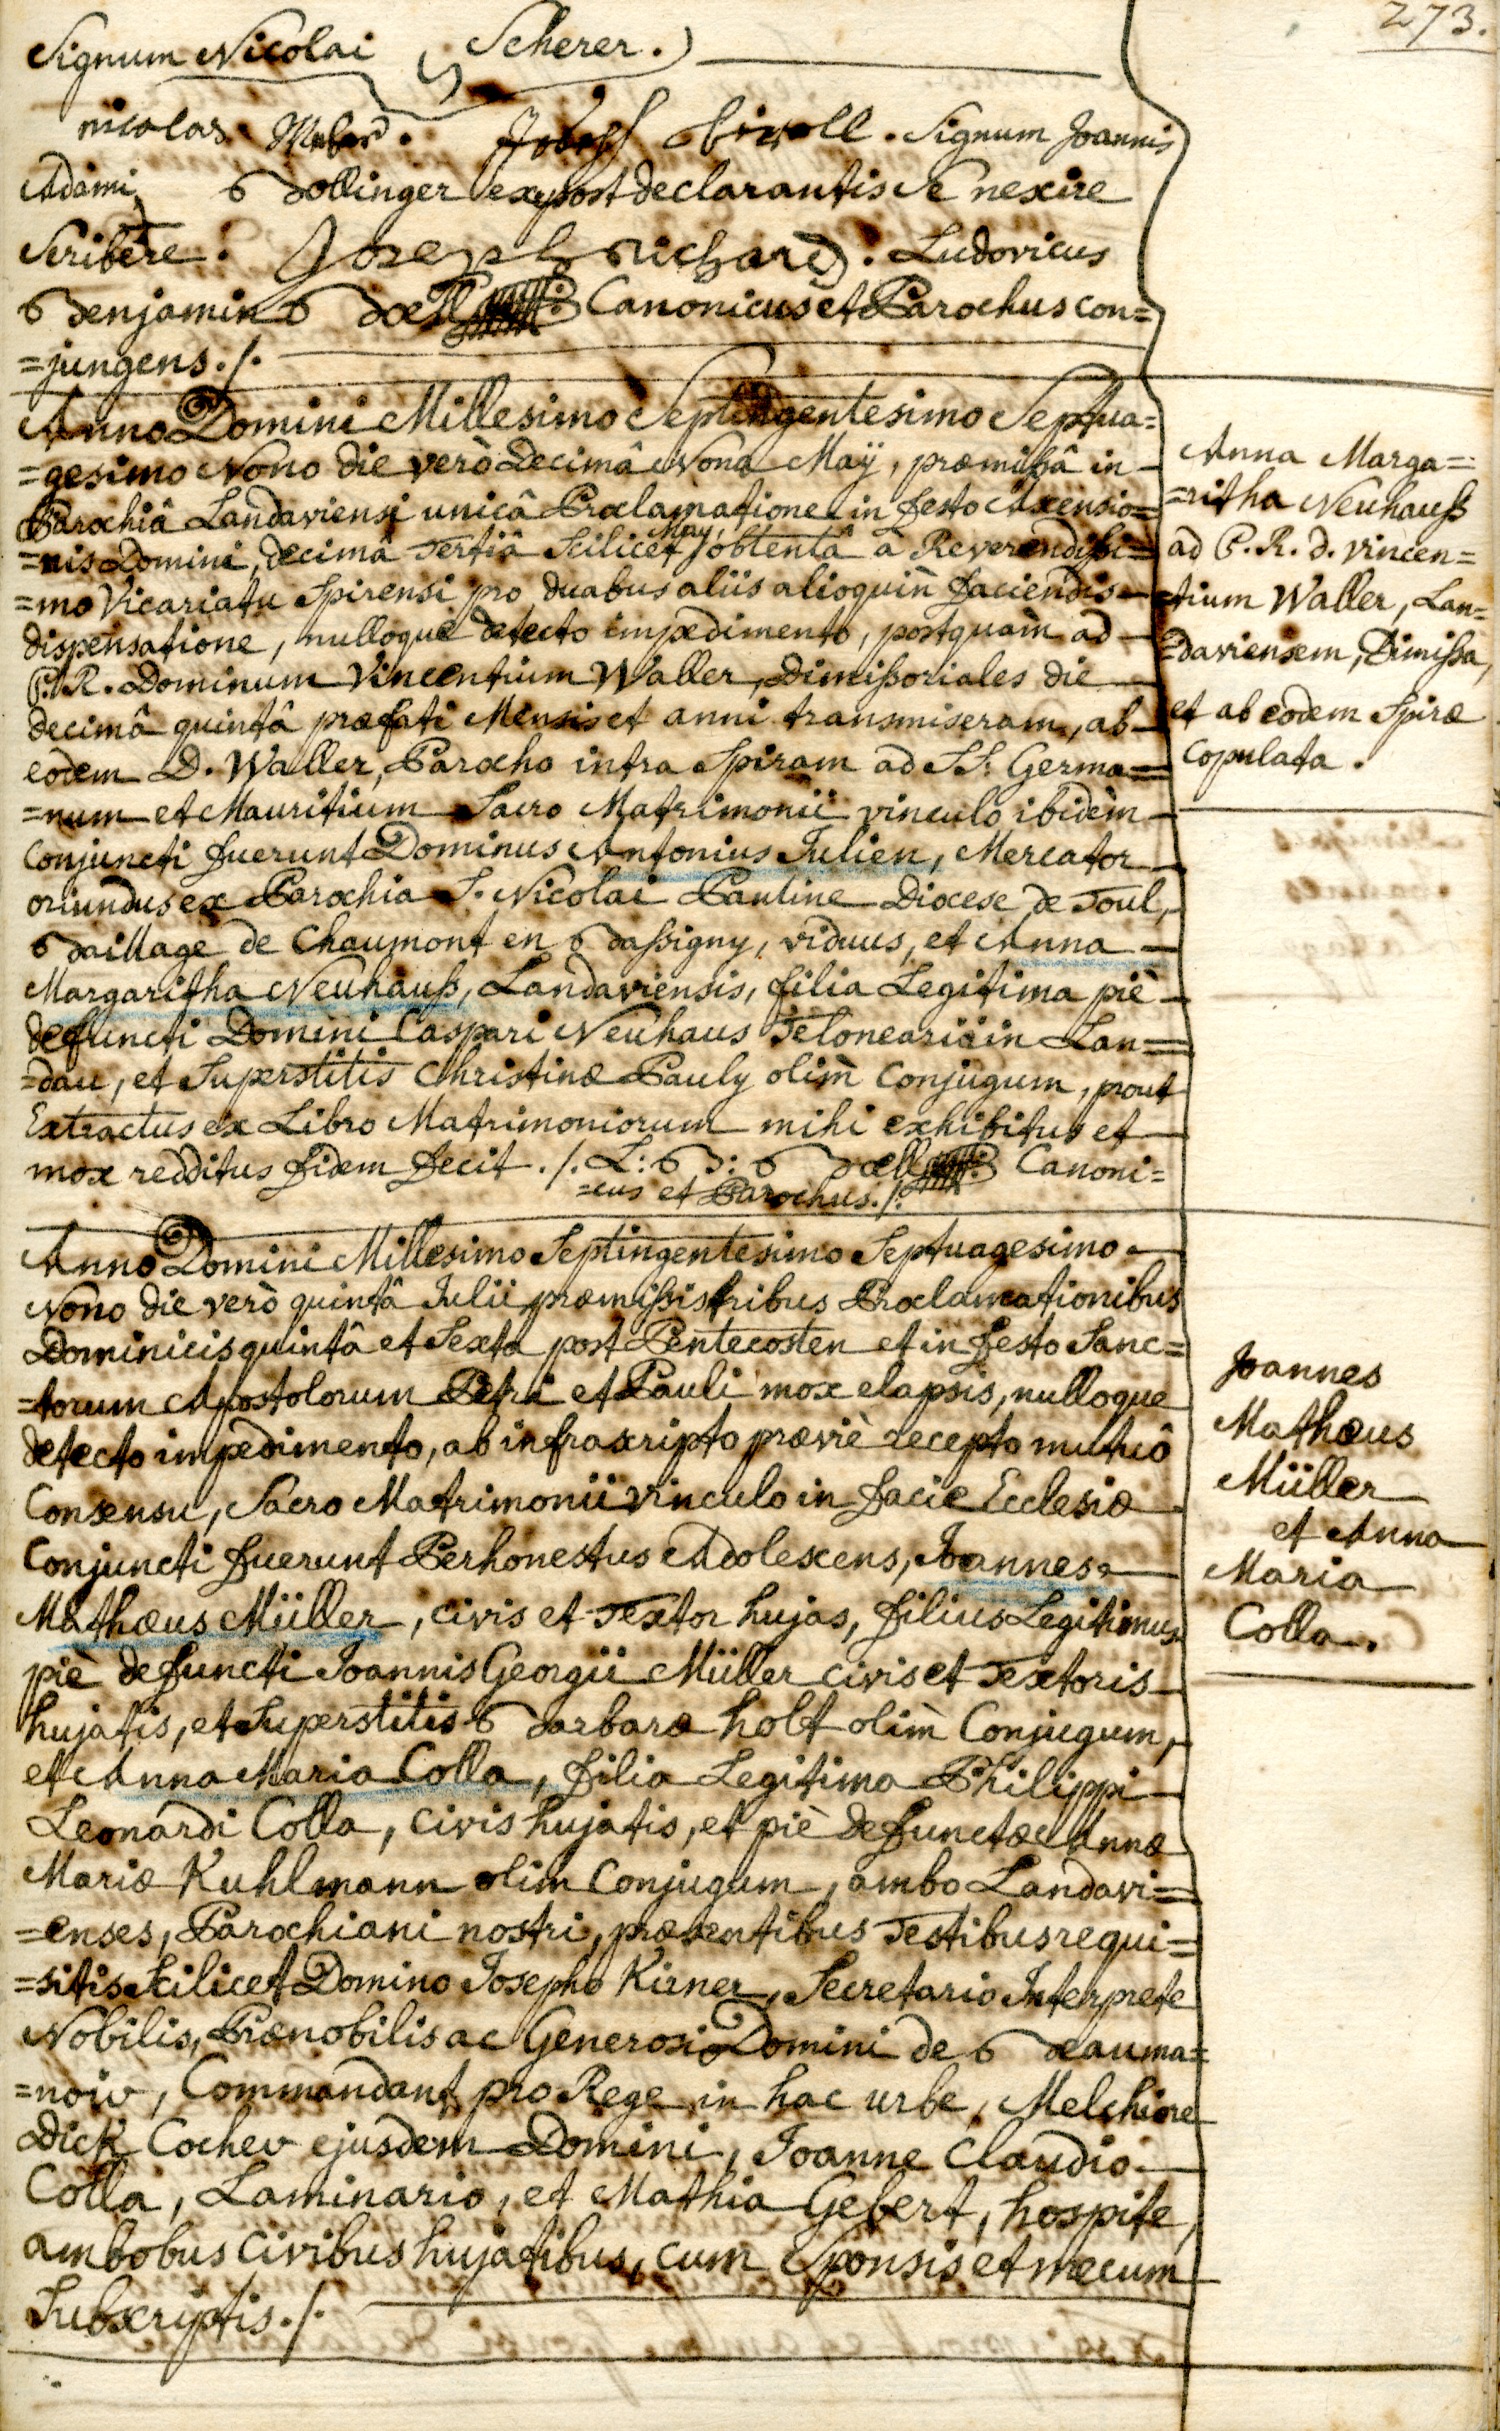 273.
Signum Nicolai Scherer.
nicolas Weber. Joseph . Signum Joannis
Adami Bollinger ex post declarantis se nescire
Scribere. Joseph richard. Ludovicus
Benjamin Boell Canonicus et Parochus con=
=jungens./.
Anno Domini Millesimo Septingentesimo Septua=
=gesimo Nono die verò Decimâ Nona Maÿ, præmißâ in
Parochiâ Landaviensi unicâ Proclamatione in festo Ascensio=
=nis Domini, decimâ Tertiâ Scilicet May, obtentâ à Reverendißi=
=mo Vicariatu Spirensi pro duabus aliis alioquin faciendis
dispensatione, nulloque detecto impedimento, postquam ad
P. R. Dominum Vincentium Waller, Dimißoriales die
decimâ quintâ præfati Mensis et anni transmiseram, ab
eodem D. Waller, Parocho intra Spiram ad SS. Germa=
=num et Mauritium Sacro Matrimonii vinculo ibidem
conjuncti fuerunt Dominus Antonius Julien, Mercator
oriundus ex Parochia S. Nicolai Pantine Diocese de Toul,
Baillage de Chaumont en Baßigny, viduus, et Anna
Margaritha Neuhauß, Landaviensis, filia Legitima piè
defuncti Domini Caspari Neuhaus Telonearii in Lan=
=dau, et Superstitis Christinæ Pauly olim conjugum, prout
Extractus ex Libro Matrimoniorum mihi exhibitus et
mox redditus fidem fecit./. L: B: Boell Canoni=
=cus et Parochus./.
Anna Marga=
=ritha Neuhauß
ad P. R. D. vincen=
tium Waller, Lan=
=daviensem, Dimißa,
et ab eodem Spiræ
copulata.
Anno Domini Millesimo Septingentesimo Septuagesimo
Nono die verò quintâ Julii præmißis tribus Proclamationibus
Dominicis quintâ et Sexta post Pentecosten et in festo Sanc=
=torum Apostolorum Petri et Pauli mox elapsis, nulloque
detecto impedimento, ab infrascripto præviè recepto mutuô
Consensu, Sacro Matrimonii vinculo in facie Ecclesiæ
Conjuncti fuerunt Perhonestus Adolescens, Joannes
Mathæus Müller, civis et Textor hujas, filius Legitimus
piè defuncti Joannis Georgii Müller civis et Textoris
hujatis, et Superstitis Barbaræ holt olim Conjugum,
et Anna Maria Colla, filia Legitima Philippi
Leonardi Colla, civis hujatis, et piè defunctæ Annæ
Mariæ Kuhlmann olim Conjugum, ambo Landavi=
=enses, Parochiani nostri, præsentibus Testibus requi=
=sitis Scilicet Domino Josepho Kirner, Secretario Interprete
Nobilis, Prænobilis ac Generosi Domini de Beauma=
=noir, Commandant pro Rege in hac urbe, Melchiore
Dick Cocher ejusdem Domini, Joanne Claudio
Colla, Laminario, et Mathia Gebert, hospite,
ambobus civibus hujatibus, cum Sponsis et mecum
Subscriptis./.
Joannes
Mathæus
Müller
et Anna
Maria
Colla.